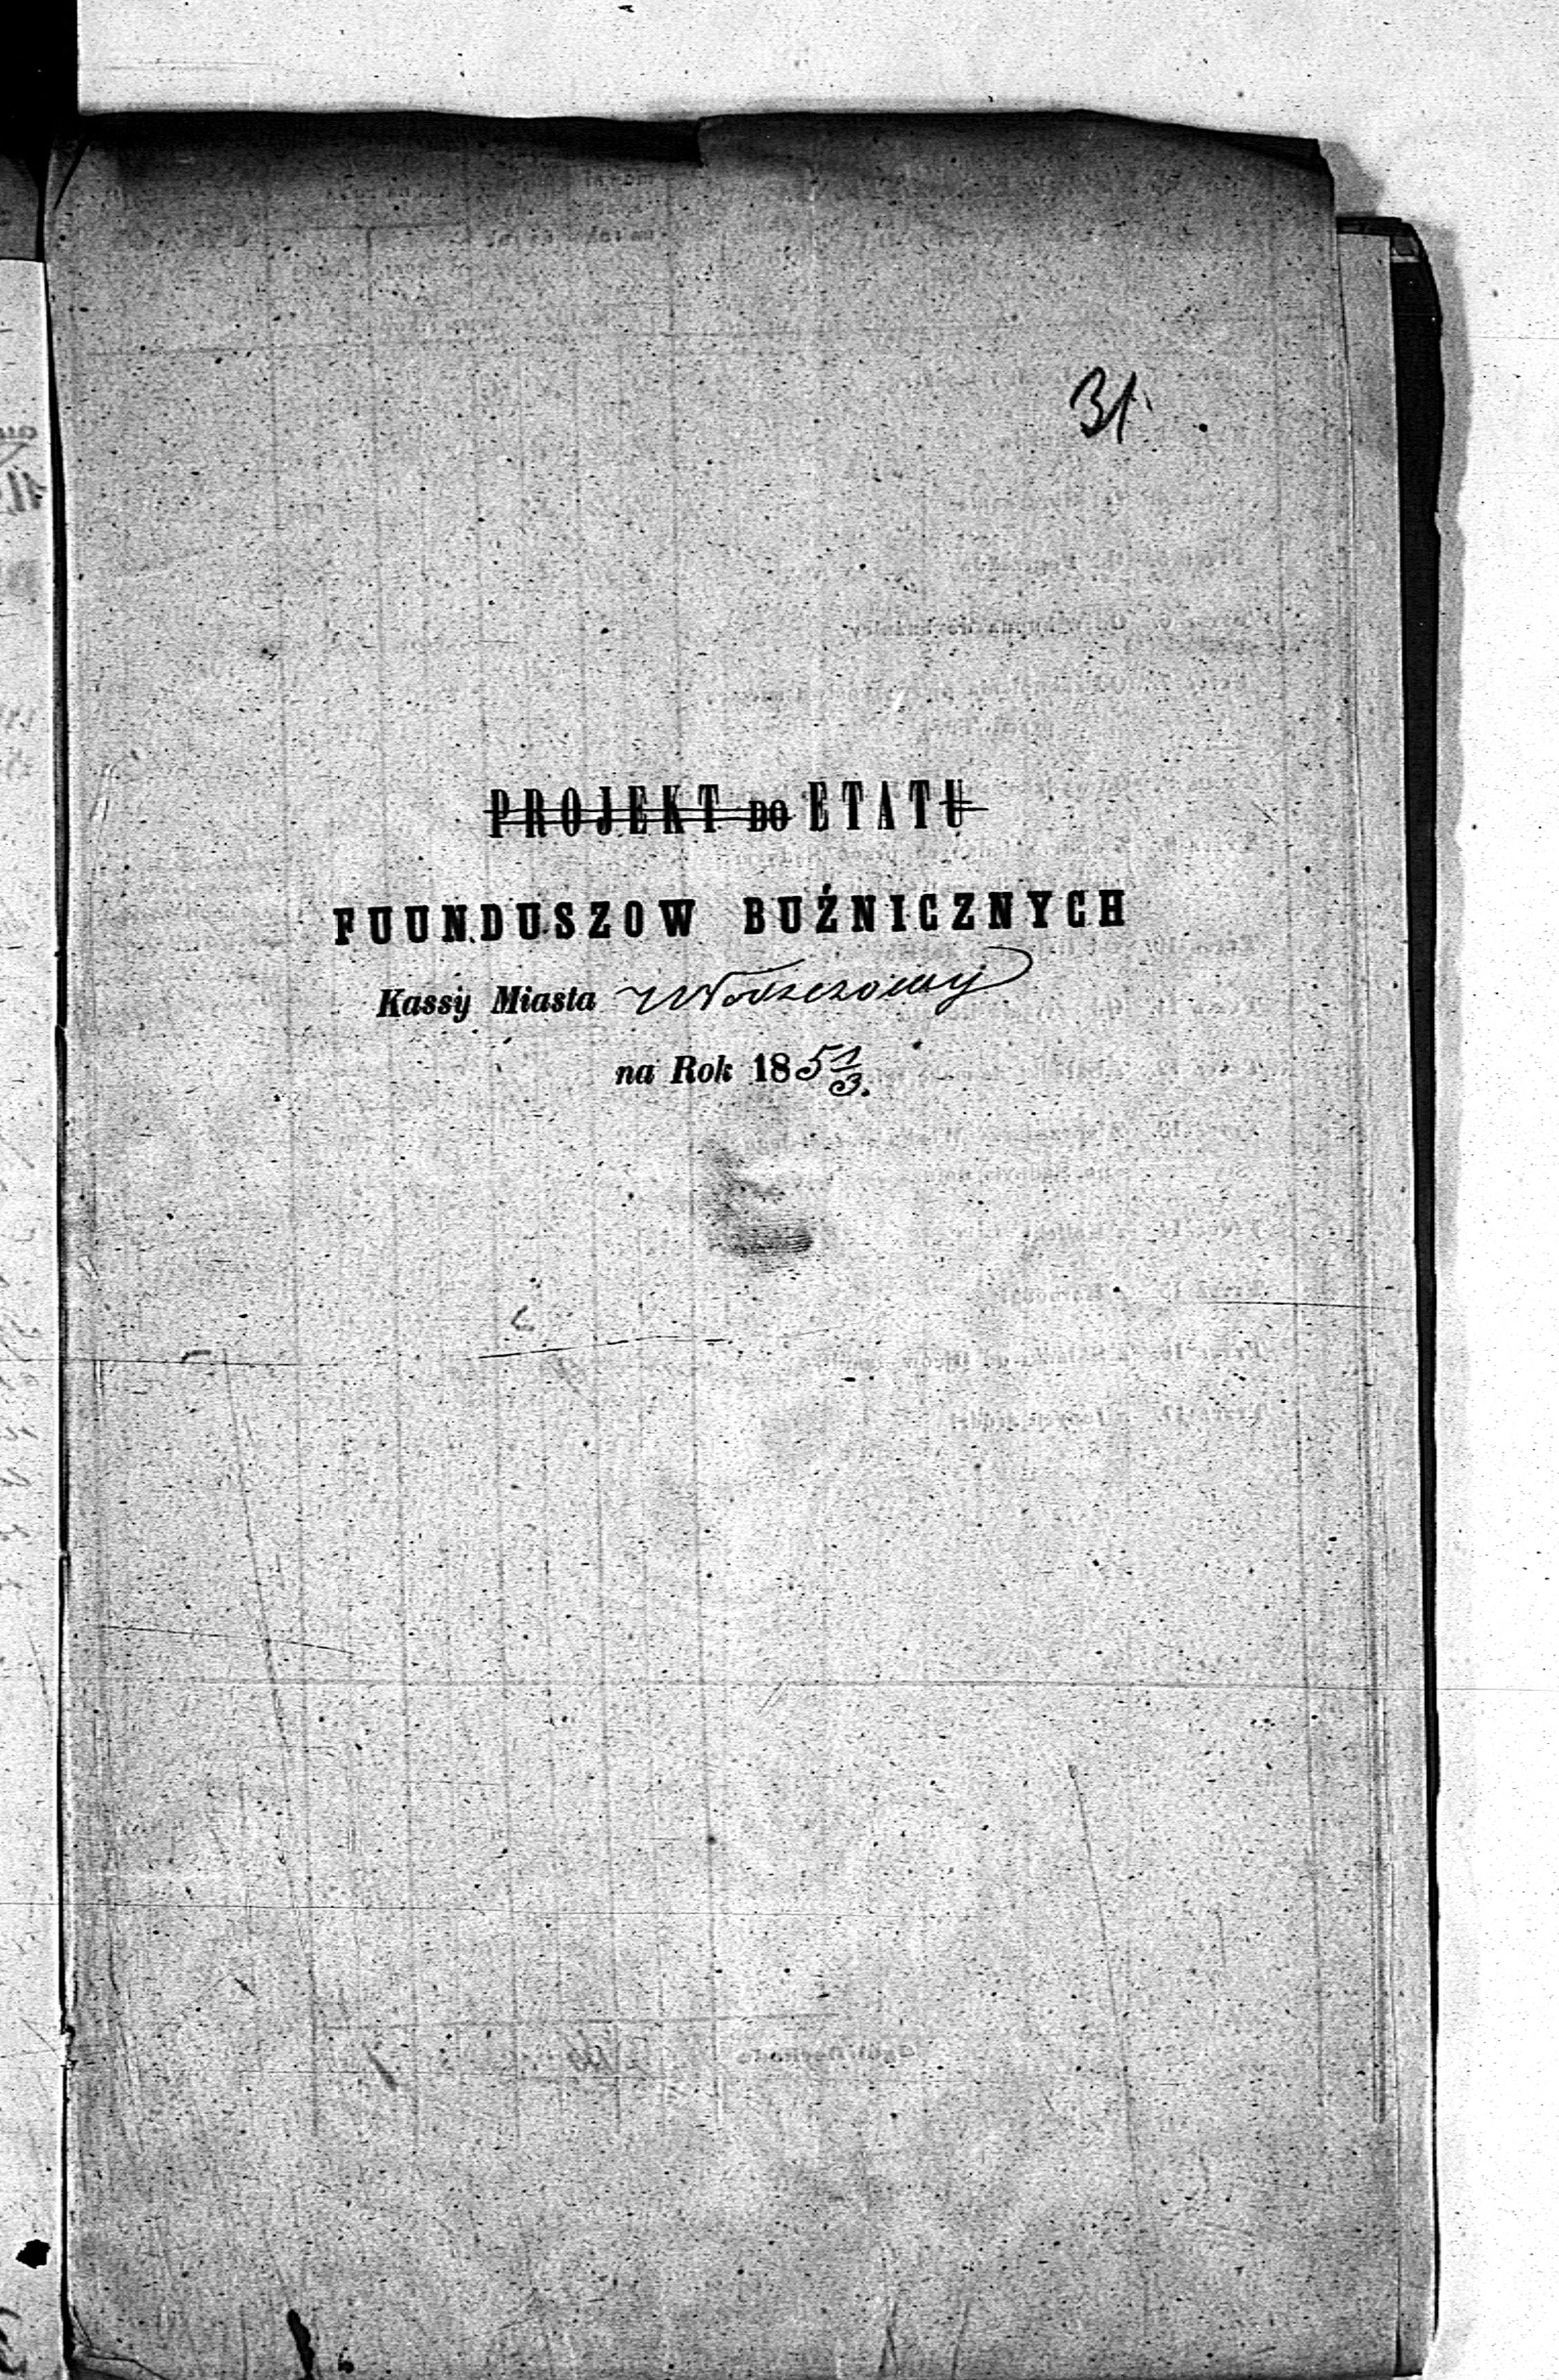 31.
PROJEKT DO ETATU
FUUNDUSZOW BUŹNICZNYCH
Kassy Miasta Włoszczowy
na Rok 18 51/3.